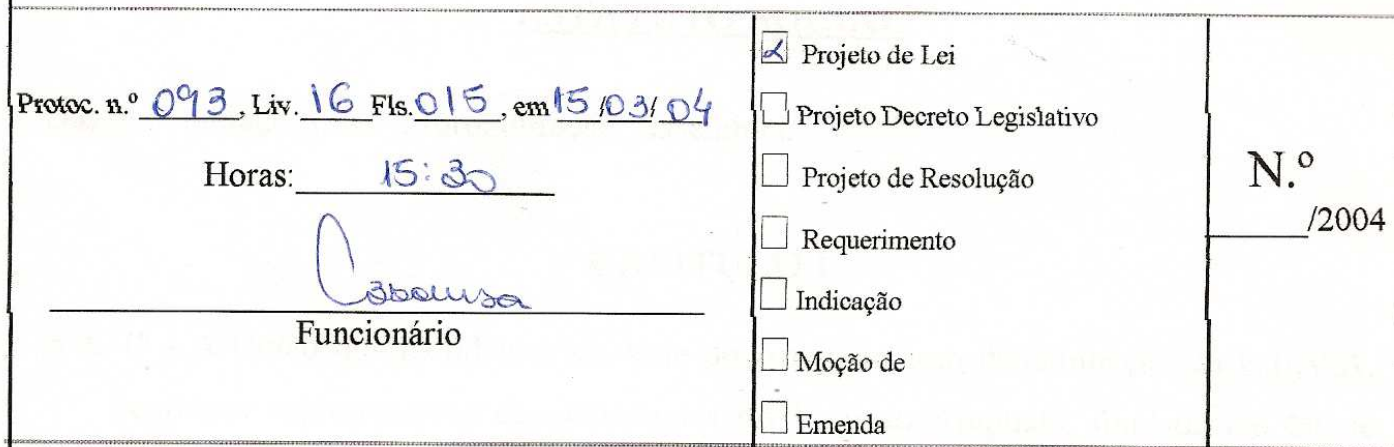 Protoc. n.º 093, Liv. 16 Fls. 015, em 15/03/04
Horas: 15:30
Funcionário
Projeto de Lei
Projeto Decreto Legislativo
Projeto de Resolução
Requerimento
Indicação
Moção de
Emenda
N.º
/2004